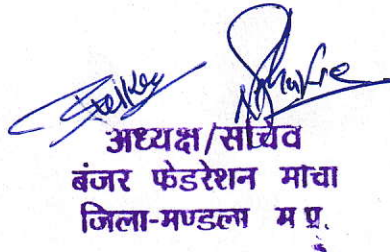 अध्यक्ष/सचिव
बंजर फेडरेशन मांचा
जिला-मण्डला म.प्र.